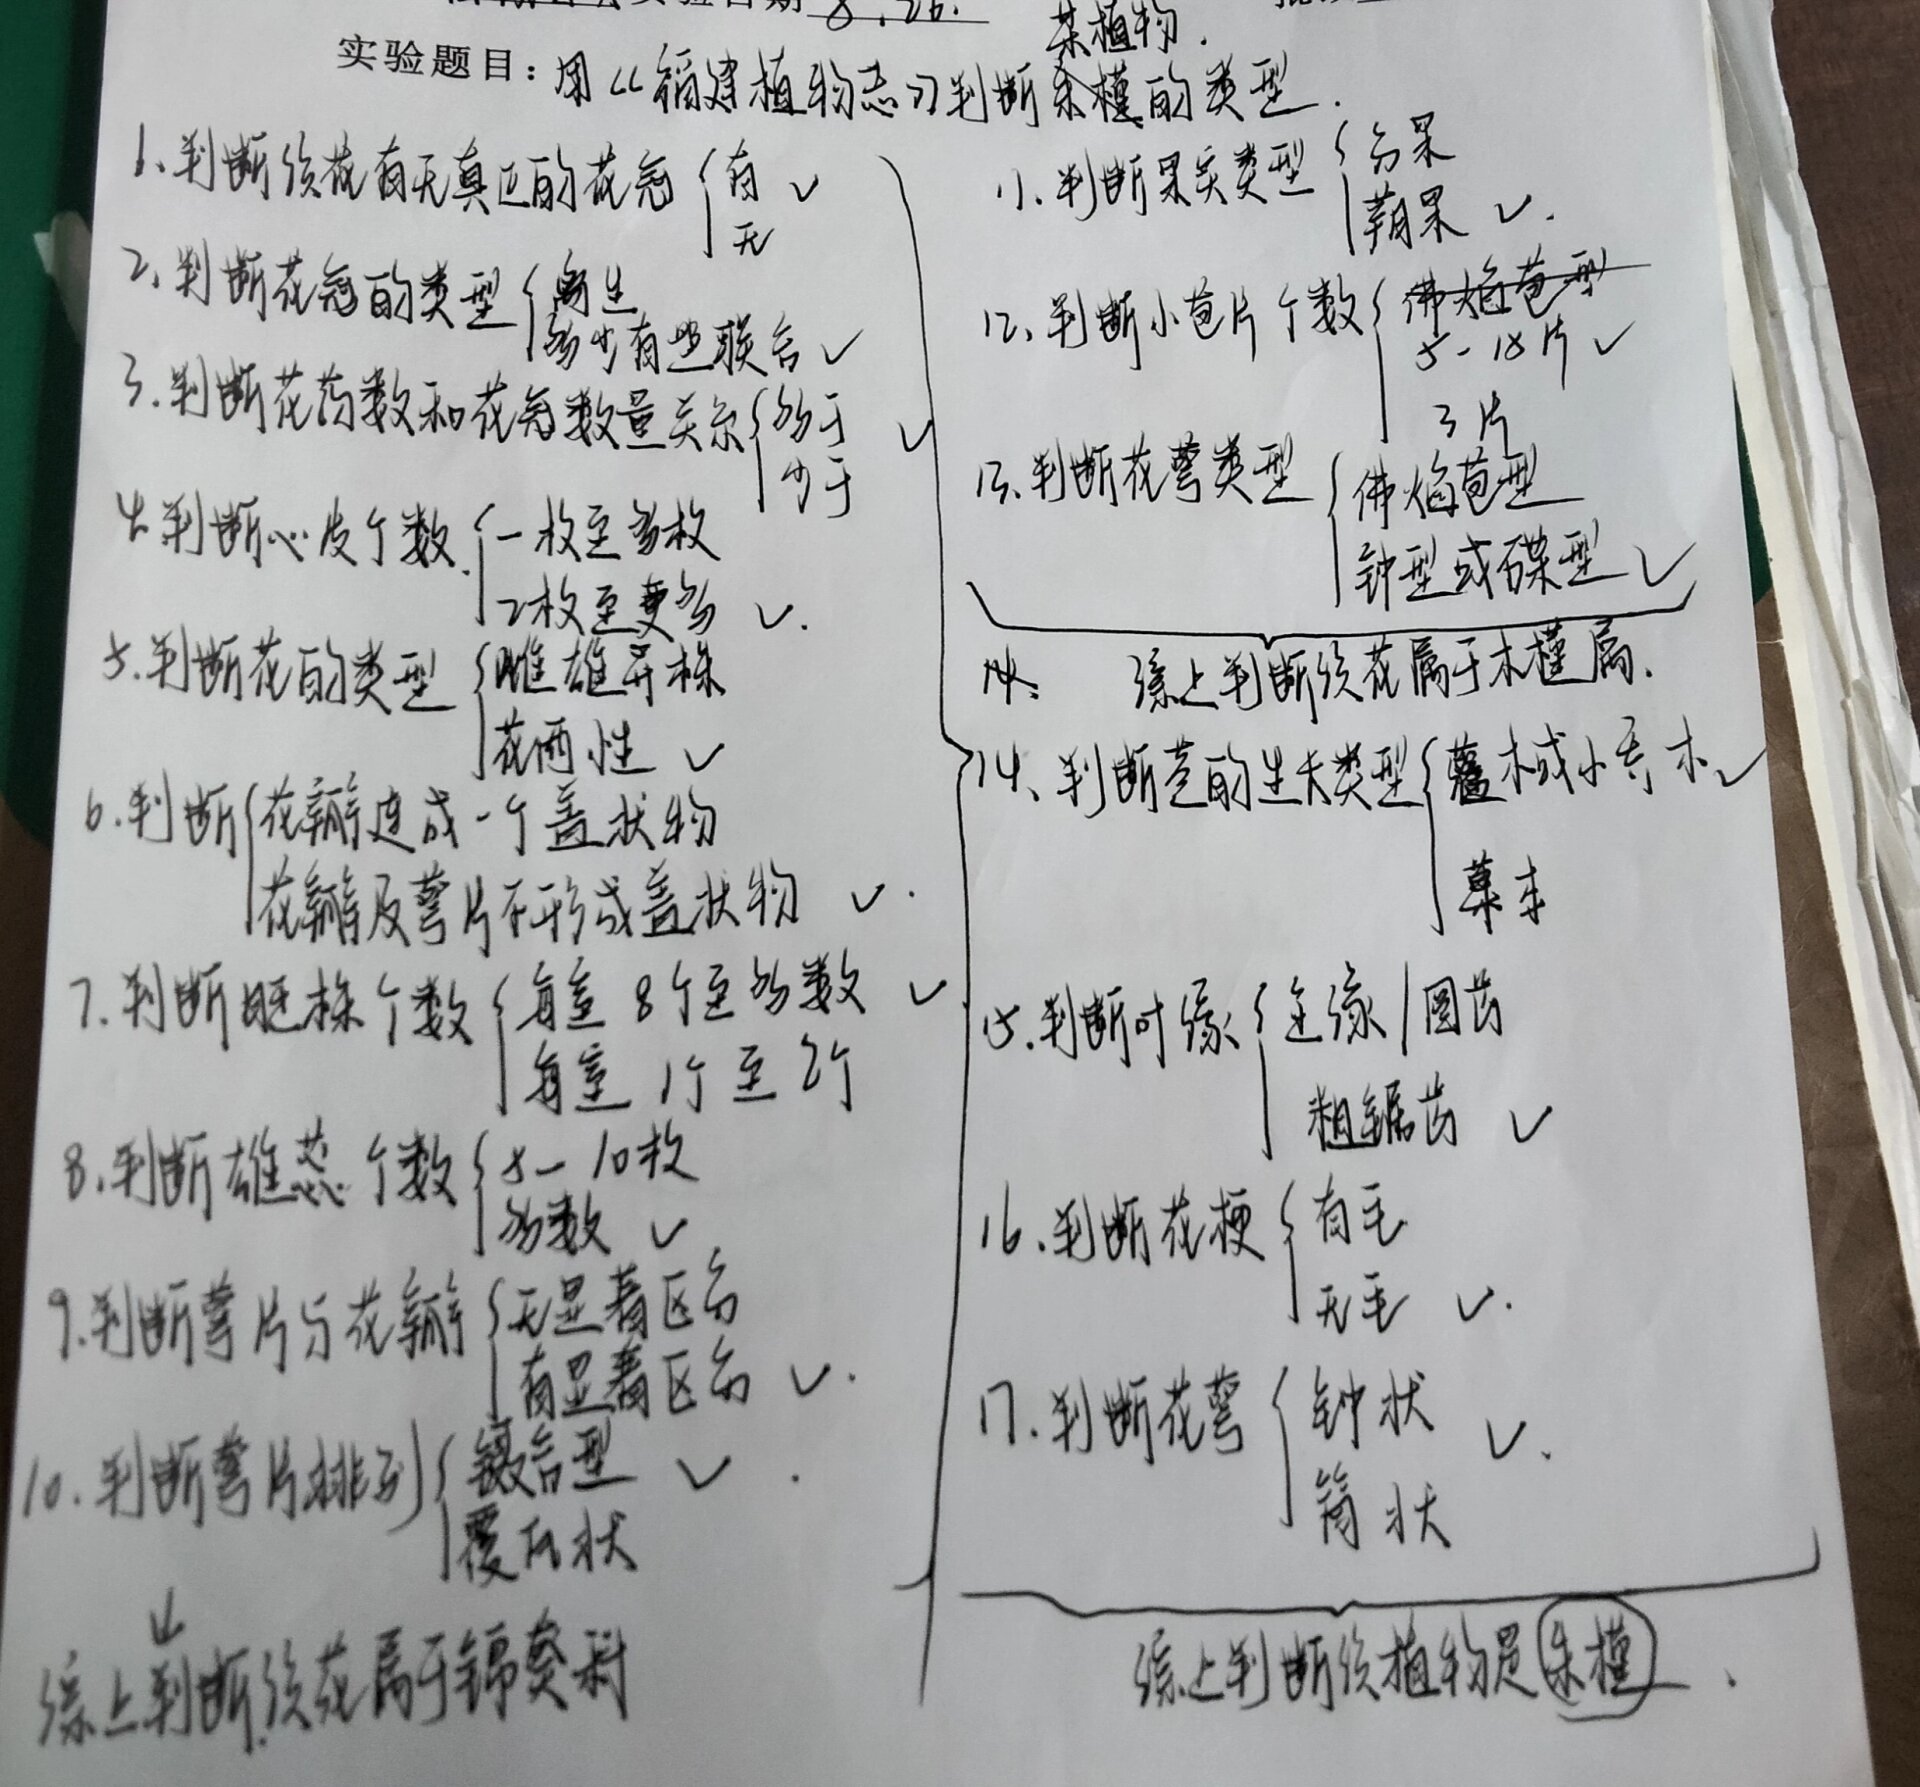 实验日期 8.26.
某植物.
实验题目：用《福建植物志》判断朱槿的类型.
1.判断该花有无真正的花冠 有 ✓
无
2.判断花冠的类型 离生
多少有些联合 ✓
3.判断花药数和花冠数量关系 多于 ✓
少于
4.判断心皮个数 一枚至多枚
2枚至更多 ✓.
5.判断花的类型 雌雄异株
花两性 ✓
6.判断 花瓣连成一个盖状物
花瓣及萼片不形成盖状物 ✓.
7.判断胚珠个数 每室8个至多数 ✓
每室1个至2个
8.判断雄蕊个数 5-10枚
多数 ✓
9.判断萼片与花瓣 无显着区分
有显着区分 ✓.
10.判断萼片排列 镊合型 ✓.
覆瓦状
综上判断,该花属于锦葵科
11、判断果实类型 分果
蒴果 ✓.
12、判断小苞片个数 佛焰苞型
5-18片 ✓
3片
13、判断花萼类型 佛焰苞型
钟型或碟型 ✓
14、 综上判断该花属于木槿属.
14、判断茎的生长类型 灌木或小乔木 ✓
草本
15.判断叶缘 全缘/圆齿
粗锯齿 ✓
16.判断花梗 有毛
无毛 ✓.
17.判断花萼 钟状 ✓.
筒状
综上判断该植物是朱槿.